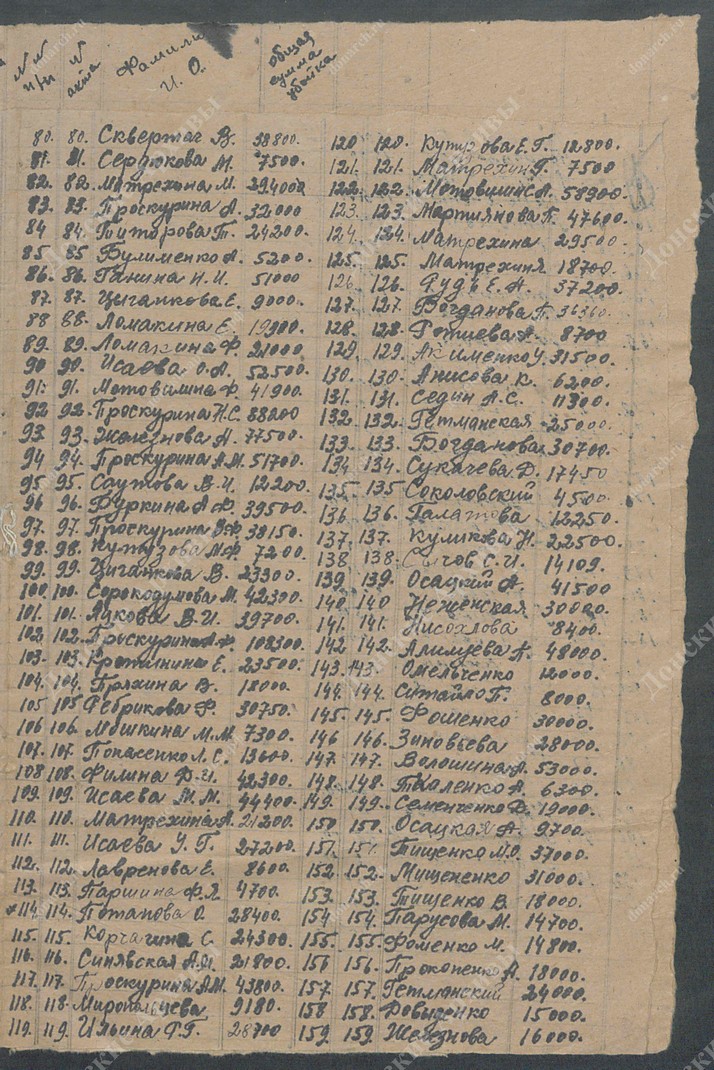 N N п/п N акта Фамили И. О. общая сумма убытка
80. 80. Сквертач В. 38800.
81. 81. Сердюкова М. 7500.
82. 82. Матрехина М. 294000
83. 83. Проскурина А. 32000
84 84. Туторова Т. 24200.
85 85 Булименко А. 5200.
86. 86. Ганина Н. И. 51000
87. 87. Цыганкова Е. 9000.
88 88. Ломакина Е. 19900.
89. 89. Ломакина Ф. 21000
90 90. Исаева О. А. 52500.
91. 91. Мотовилина Ф. 41900.
92 92. Проскурина Н.С. 88200
93. 93. Железнова А. 77500.
94 94. Проскурина А.М. 51700.
95 95. Саутова В. И. 12200.
96 96. Фуркина А. Ф. 39500.
97. 97. Проскурина В.Ф. 38150.
98. 98. Кутузова М.Ф. 7200.
99. 99. Цыганкова В. 23300.
100 100. Сорокодумова М. 42300.
101. 101. Яцкова В. И. 39700.
102. 102. Проскурина А.Ф. 108300.
103. 103. Кротинина Е. 23500.
104. 104. Пряхина В. 18000.
105 105 Ребрикова Ф. 30750.
106 106. Мошкина М. М. 7300.
107. 107. Попасенко Л. С. 13600.
108 108. Филина Ф. И. 42300.
109. 109. Исаева М. М. 44400.
110. 110. Матрехина А. 21200.
111. 111. Исаева У. Г. 27200.
112. 112. Лавренова Е. 8600.
113. 113. Паршина Ф. Я. 4700.
114. 114. Потапова О. 28400.
115. 115. Корчагина С. 24300.
116. 116. Синявская А.И. 21800.
117. 117. Проскурина А.М. 43800.
118. 118 Миропольцева 9180.
119. 119. Ильина Г. Г. 28700
120 120. Кутузова Е. Г. 12800.
121. 121. Матрехин Г. 7500
122 122. Мотовилин А. 58900.
123 123. Мартиянова П. 47600.
124. 124. Матрехина 29500.
125. 125. Матрехина 18700.
126. 126. Рудь Е. А. 37200.
127. 127. Богданова П. 36360.
128. 128. Ротиева А. 8700
129. 129. Акименко У. 31500.
130. 130. Анисова К. 6200.
131. 131. Седин А. С. 11300.
132. 132. Гетманская 25000.
133. 133. Богданова 30700.
134. 134. Сукачева Д. 17450
135. 135 Соколовский 4500
136 136. Галатова 12250.
137. 137. Куликова Н. 22500.
138 138. Сычов С. И. 14109.
139. 139. Осацкий А. 41500
140. 140 Неженская 30000.
141. 141. Нисохлова 8400.
142 142. Алимцева А. 48000.
143. 143. Омельченко 12000.
144. 144. Ситайло П. 8000.
145. 145. Фошенко 30000.
146 146. Зиновьева 28000.
147. 147. Волошина А. 53000.
148. 148. Ткаленко А. 6300.
149. 149. Семенченко Д. 19000.
150 150. Осацкая А. 9700.
151. 151. Тищенко М.О. 37000.
152. 152. Мищененко 31000.
153. 153. Тищенко В. 18000.
154. 154. Парусова М. 14700.
155. 155. Фоменко М. 14800.
156 156. Прокопенко А. 18000.
157. 157. Гетманский 24000.
158 158. Довыденко 15000.
159. 159. Железнова 16000.